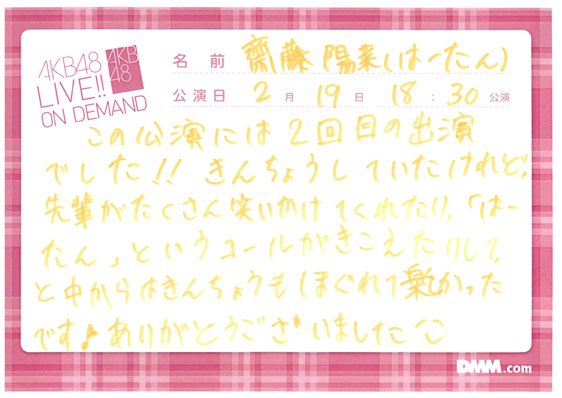 AKB48
LIVE!!
ON DEMAND
AKB
48
名前 齋藤陽菜(はーたん)
公演日 2月 19日 18:30公演
この公演には2回目の出演
でした!! きんちょうしていたけれど、
先輩がたくさん笑いかけてくれたり、「はー
たん」というコールがきこえたりして、
と中からはきんちょうもほぐれて楽しかった
です♪ありがとうございました
DMM.com